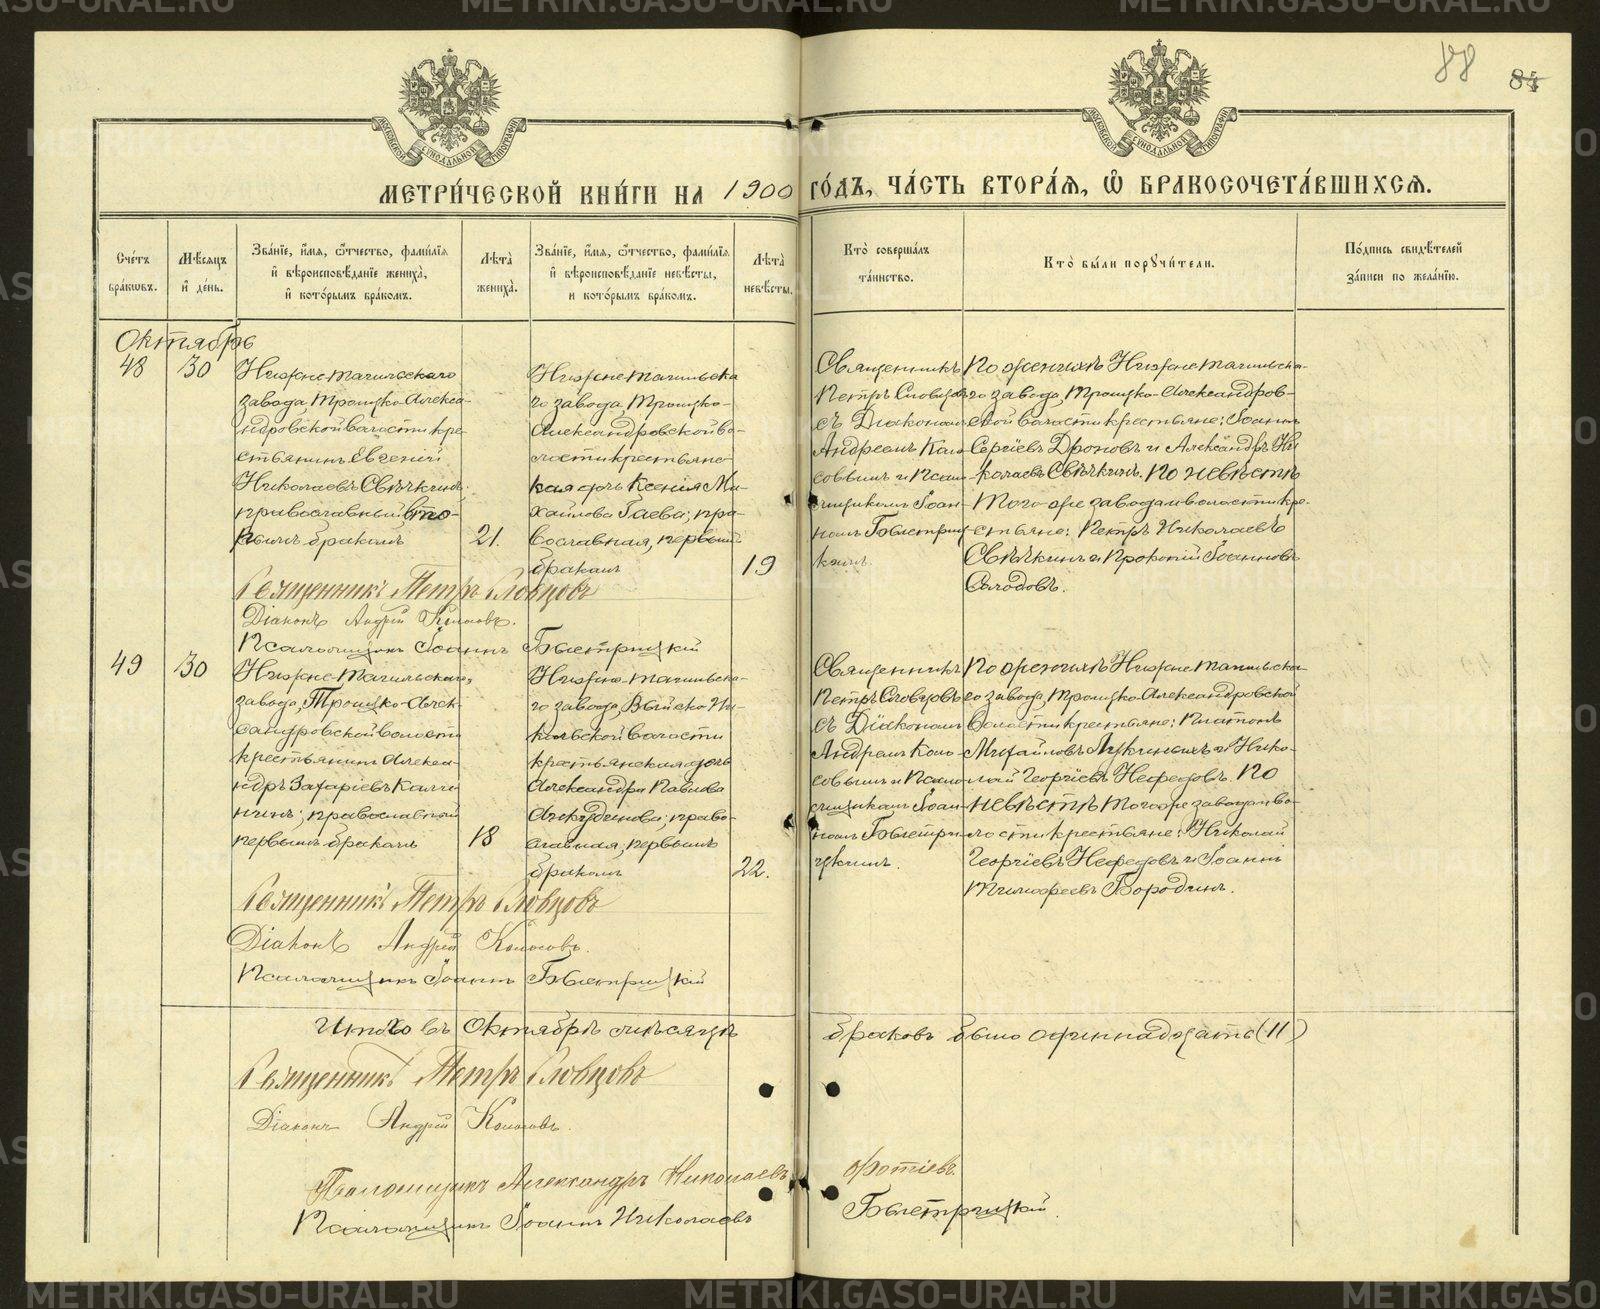 88
84
МЕТРИ́ЧЕСКОЙ КНИ́ГИ НА 1900 ГО́ДЪ, ЧА́СТЬ ВТОРА́Я, Ѽ БРАКОСОЧЕТА́ВШИХСЯ.
Сче́тъ бра́кѡвъ.
Мѣ́сяцъ и҆ де́нь.
Зва́нїе, и҆́мя, ѻ҆́тчество, фами́лїя и҆ вѣроисповѣ́данїе жениха̀, и҆ кото́рымъ бра́комъ.
Лѣ́та̀ жениха̀.
Зва́нїе, и҆́мя, ѻ҆́тчество, фами́лїя и҆ вѣроисповѣ́данїе невѣ́сты, и кото́рымъ бра́комъ.
Лѣ́та̀ невѣ́сты.
Кто̀ соверша́лъ та́инство.
Кто̀ бы́ли порꙋчи́тели.
По́дпись свидѣ́телей за́писи по жела́нїю.
Октябрь
48
30
Нижне Тагильскаго
завода, Троицко-Алекса-
ндровской волости кре-
стьянинъ Евгеній
Николаевъ Свѣчкинъ,
православный, вто-
рымъ бракомъ
21.
Нижне Тагильска
го завода, Троицко-
Александровской во-
лости крестьянс-
кая дочь Ксенія Ми-
хайлова Гаева; пра-
вославная, первымъ
бракомъ
19
Священникъ
Петръ Словцовъ
съ Діакономъ
Андреемъ Коло
совымъ и Псал
мщикомъ Іоан-
номъ Быстриц
кимъ.
По женихѣ Нижне Тагильска-
го завода, Троицко-Александров-
ской волости крестьяне: Іоаннъ
Сергіевъ Дроновъ и Александръ Ни
колаевъ Свѣчкинъ. По невѣстѣ
того-же завода и волости кре-
стьяне: Петръ Николаевъ
Свѣчкинъ и Прокопій Іоанновъ
Солодовъ.
Священникъ Петръ Словцовъ
Діаконъ Андрей Колосовъ.
Псаломщикъ Іоаннъ Быстрицкій
49
30
Нижне-Тагильскаго
завода, Троицко-Алек-
сандровской волости
крестьянинъ Алекса-
ндръ Захаріевъ Кали-
нинъ; православный
первымъ бракомъ
18
Нижне-Тагильска-
го завода, Выйско-Ни-
кольской волости
крестьянская дочь
Александра Павлова
Анкудинова; право-
славная, первымъ
бракомъ
22.
Священникъ
Петръ Словцовъ
съ Діакономъ
Андреемъ Коло
совымъ и Псало
мщикомъ Іоан
номъ Быстри-
цкимъ.
По женихѣ Нижне Тагильска-
го завода, Троицко-Александровской
волости крестьяне: Платонъ
Михайловъ и Нико-
лай Георгіевъ Нефедовъ. По
невѣстѣ того же завода и во-
лости крестьяне: Николай
Георгіевъ Нефедовъ и Іоаннъ
Тимофеевъ Бородинъ.
Священникъ Петръ Словцовъ
Діаконъ Андрей Колосовъ.
Псаломщикъ Іоаннъ Быстрицкій
Итого въ Октябрѣ мѣсяцѣ браковъ было одиннадцать (11)
Священникъ Петръ Словцовъ
Діаконъ Андрей Колосовъ.
Псаломщикъ Александръ Николаевъ Фотіевъ.
Псаломщикъ Іоаннъ Николаевъ Быстрицкій.
METRIKI.GASO-URAL.RU